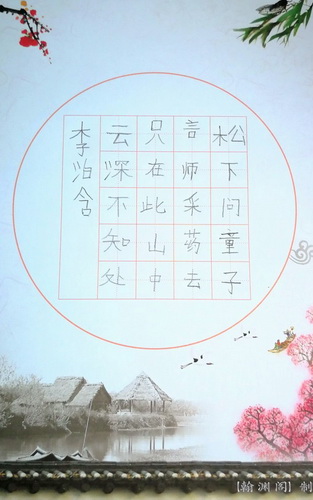 松下问童子
言师采药去
只在此山中
云深不知处
李泊含
【翰渊阁】制